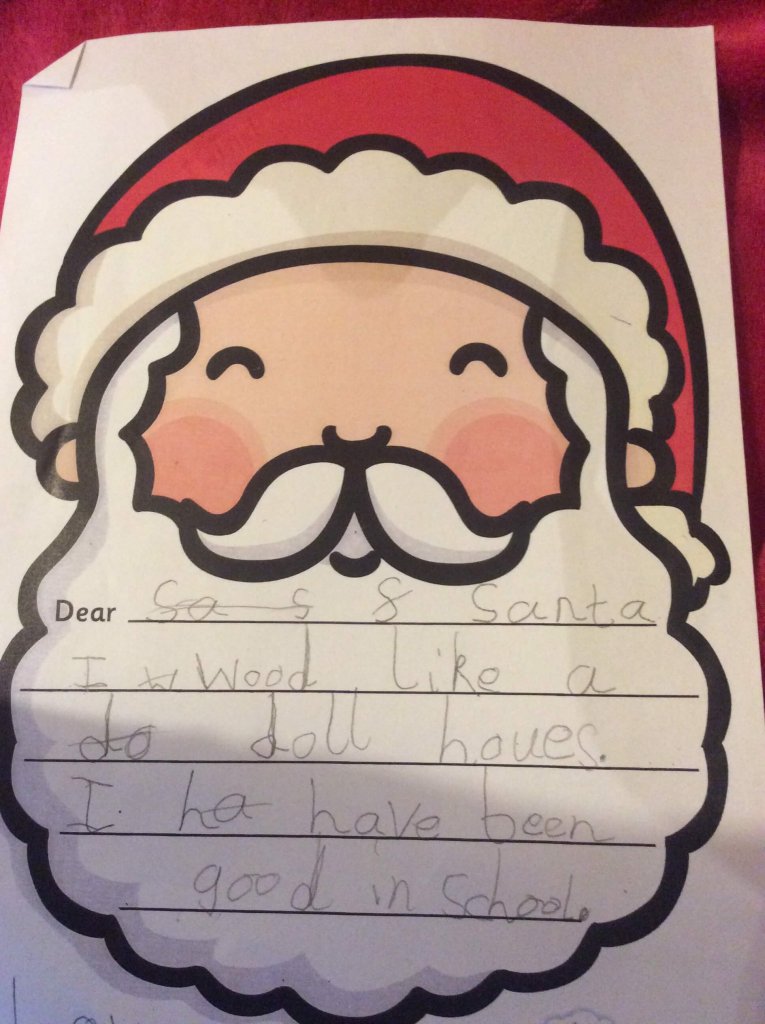 Dear Santa
I Wood like a
doll houes.
I have been
good in school.